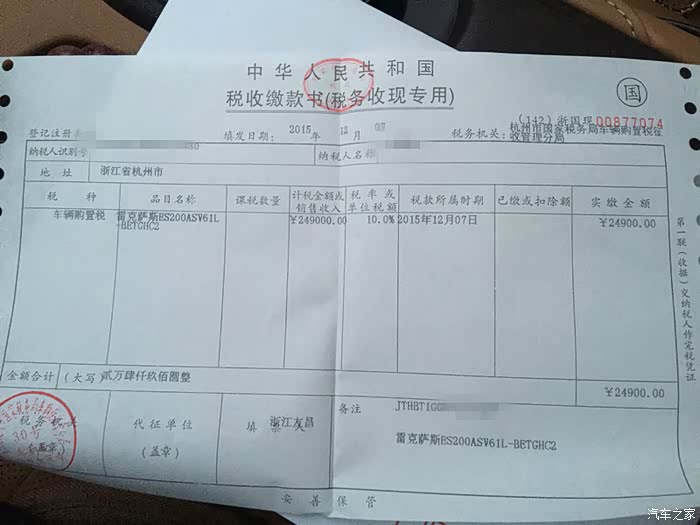 中华人民共和国
税收缴款书(税务收现专用)
国
(142)浙国现 00877074
登记注册 填发日期: 2015年 12月 07 税务机关: 杭州市国家税务局车辆购置税征收管理分局
纳税人识别号 30 纳税人名称
地址 浙江省杭州市
税种 品目名称 课税数量 计税金额或销售收入 税率或单位税额 税款所属时期 已缴或扣除额 实缴金额
车辆购置税 雷克萨斯ES200ASV61L-BETGHC2 ¥249000.00 10.0% 2015年12月07日 ¥24900.00
金额合计 (大写)贰万肆仟玖佰圆整 ¥24900.00
税务机关
(盖章)
代征单位
(盖章)
填票人
浙江友昌
备注 JTHBT1GG
雷克萨斯ES200ASV61L-BETGHC2
妥善保管
第一联(收据)交纳税人作完税凭证
汽车之家